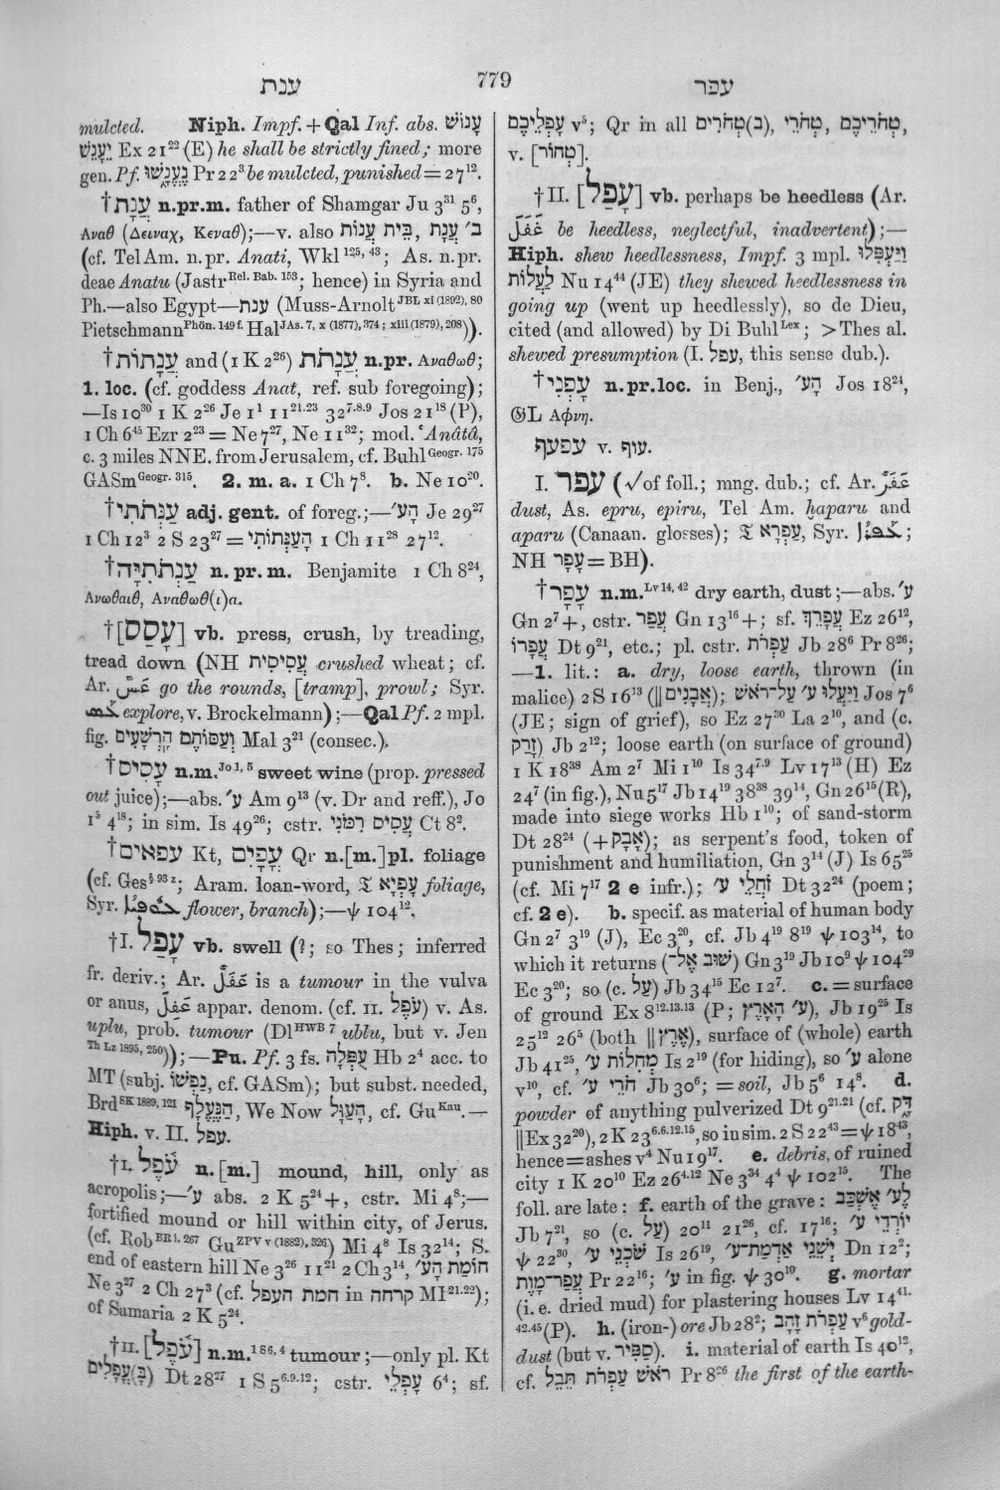 ענת
779
עפר
mulcted. Niph. Impf. + Qal Inf. abs. עָנוֹשׁ
יֵעָנֵשׁ Ex 21²² (E) he shall be strictly fined; more
gen. Pf. נֶעֱנָ֑שׁוּ Pr 22³ be mulcted, punished = 27¹².
†עֲנָת n.pr.m. father of Shamgar Ju 3³¹ 5⁶,
Αναθ (Δειναχ, Κεναθ);—v. also בֵּית עֲנוֹת, ב׳ עֲנָת
(cf. Tel Am. n. pr. Anati, Wkl ¹²⁵, ⁴³; As. n. pr.
deae Anatu (Jastr Rel. Bab. 153; hence) in Syria and
Ph.—also Egypt—ענת (Muss-Arnolt JBL xi (1892), 80
Pietschmann Phön. 149 f. Hal JAs. 7, x (1877), 374; xiii (1879), 208)).
†עֲנָתוֹת and (1 K 2²⁶) עֲנָתֹת n.pr. Αναθωθ;
1. loc. (cf. goddess Anat, ref. sub foregoing);
—Is 10³⁰ 1 K 2²⁶ Je 1¹ 11²¹·²³ 32⁷·⁸·⁹ Jos 21¹⁸ (P),
1 Ch 6⁴⁵ Ezr 2²³ = Ne 7²⁷, Ne 11³²; mod. ʿAnâtâ,
c. 3 miles NNE. from Jerusalem, cf. Buhl Geogr. 175
GASm Geogr. 315. 2. m. a. 1 Ch 7⁸. b. Ne 10²⁰.
†עַנְּתֹתִי adj. gent. of foreg.;—הָע׳ Je 29²⁷
1 Ch 12³ 2 S 23²⁷ = הָעַנְּתוֹתִי 1 Ch 11²⁸ 27¹².
†עַנְתֹתִיָּה n. pr. m. Benjamite 1 Ch 8²⁴,
Ανωθαιθ, Αναθωθ(ι)α.
†[עָסַס] vb. press, crush, by treading,
tread down (NH עֲסִיסִית crushed wheat; cf.
Ar. عَسَّ go the rounds, [tramp], prowl; Syr.
explore, v. Brockelmann);—Qal Pf. 2 mpl.
fig. וְעַסּוֹתֶם הָרְשָׁעִים Mal 3²¹ (consec.).
†עָסִיס n.m. Jo 1, 5 sweet wine (prop. pressed
out juice);—abs. ע׳ Am 9¹³ (v. Dr and reff.), Jo
1⁵ 4¹⁸; in sim. Is 49²⁶; cstr. עֲסִיס רִמֹּנִי Ct 8².
†עפאים Kt, עֳפָיִם Qr n.[m.]pl. foliage
(cf. Ges § 93 z; Aram. loan-word, 𝔗 עֳפְיָא foliage,
Syr. flower, branch);—ψ 104¹².
†I. עָפַל vb. swell (?; so Thes; inferred
fr. deriv.; Ar. عَفَلٌ is a tumour in the vulva
or anus, عَفِلَ appar. denom. (cf. II. עֹפֶל) v. As.
uplu, prob. tumour (Dl HWB 7 ublu, but v. Jen
Th Lz 1895, 250));—Pu. Pf. 3 fs. עֻפְּלָה Hb 2⁴ acc. to
MT (subj. נַפְשׁוֹ, cf. GASm); but subst. needed,
Brd SK 1889, 121 הַנֶּעֱלָף, We Now הֶעַוָּל, cf. Gu Kau.—
Hiph. v. II. עפל.
†I. עֹ֫פֶל n. [m.] mound, hill, only as
acropolis;—ע׳ abs. 2 K 5²⁴ +, cstr. Mi 4⁸;—
fortified mound or hill within city, of Jerus.
(cf. Rob BR i. 267 Gu ZPV v (1882), 326) Mi 4⁸ Is 32¹⁴; S.
end of eastern hill Ne 3²⁶ 11²¹ 2 Ch 3¹⁴, חוֹמַת הָע׳
Ne 3²⁷ 2 Ch 27³ (cf. חמת העפל in קרחה MI²¹·²²);
of Samaria 2 K 5²⁴.
†II. [עֹ֫פֶל] n.m. 1 S 6, 4 tumour;—only pl. Kt
(בָּ)עֳפָלִים Dt 28²⁷ 1 S 5⁶·⁹·¹²; cstr. עָפְלֵי 6⁴; sf.
עָפְלֵיכֶם v⁵; Qr in all (ב)טְחֹרִים, טְחֹרֵי, טְחֹרֵיכֶם,
v. [טְחוֹר].
†II. [עָפַל] vb. perhaps be heedless (Ar.
غَفَلَ be heedless, neglectful, inadvertent);—
Hiph. shew heedlessness, Impf. 3 mpl. וַיַּעְפִּלוּ
לַעֲלוֹת Nu 14⁴⁴ (JE) they shewed heedlessness in
going up (went up heedlessly), so de Dieu,
cited (and allowed) by Di Buhl Lex; > Thes al.
shewed presumption (I. עפל, this sense dub.).
†עָפְנִי n.pr.loc. in Benj., הָע׳ Jos 18²⁴,
𝔊L Αφνη.
עפעף v. עוף.
I. עפר (√ of foll.; mng. dub.; cf. Ar. عَفَرٌ
dust, As. epru, epiru, Tel Am. ḫaparu and
aparu (Canaan. glosses); 𝔗 עַפְרָא, Syr. ܥܦܪܐ;
NH עָפָר = BH).
†עָפָר n.m. Lv 14, 42 dry earth, dust;—abs. ע׳
Gn 2⁷ +, cstr. עֲפַר Gn 13¹⁶ +; sf. עֲפָרֵךְ Ez 26¹²,
עֲפָרוֹ Dt 9²¹, etc.; pl. cstr. עַפְרֹת Jb 28⁶ Pr 8²⁶;
—1. lit.: a. dry, loose earth, thrown (in
malice) 2 S 16¹³ (‖ אֲבָנִים); וַיַּעֲלוּ ע׳ עַל־רֹאשׁ Jos 7⁶
(JE; sign of grief), so Ez 27³⁰ La 2¹⁰, and (c.
זָרַק) Jb 2¹²; loose earth (on surface of ground)
1 K 18³⁸ Am 2⁷ Mi 1¹⁰ Is 34⁷·⁹ Lv 17¹³ (H) Ez
24⁷ (in fig.), Nu 5¹⁷ Jb 14¹⁹ 38³⁸ 39¹⁴, Gn 26¹⁵ (R),
made into siege works Hb 1¹⁰; of sand-storm
Dt 28²⁴ (+ אָבָק); as serpent's food, token of
punishment and humiliation, Gn 3¹⁴ (J) Is 65²⁵
(cf. Mi 7¹⁷ 2 e infr.); זֹחֲלֵי ע׳ Dt 32²⁴ (poem;
cf. 2 e). b. specif. as material of human body
Gn 2⁷ 3¹⁹ (J), Ec 3²⁰, cf. Jb 4¹⁹ 8¹⁹ ψ 103¹⁴, to
which it returns (שׁוּב אֶל־) Gn 3¹⁹ Jb 10⁹ ψ 104²⁹
Ec 3²⁰; so (c. עַל) Jb 34¹⁵ Ec 12⁷. c. = surface
of ground Ex 8¹²·¹³·¹³ (P; ע׳ הָאָרֶץ), Jb 19²⁵ Is
25¹² 26⁵ (both ‖ אֶרֶץ), surface of (whole) earth
Jb 41²⁵, מְחִלּוֹת ע׳ Is 2¹⁹ (for hiding), so ע׳ alone
v¹⁰, cf. חֹרֵי ע׳ Jb 30⁶; = soil, Jb 5⁶ 14⁸. d.
powder of anything pulverized Dt 9²¹·²¹ (cf. דַּק
‖ Ex 32²⁰), 2 K 23⁶·⁶·¹²·¹⁵, so in sim. 2 S 22⁴³ = ψ 18⁴³,
hence = ashes v⁴ Nu 19¹⁷. e. debris, of ruined
city 1 K 20¹⁰ Ez 26⁴·¹² Ne 3³⁴ 4⁴ ψ 102¹⁵. The
foll. are late: f. earth of the grave: לֶע׳ אֶשְׁכָּב
Jb 7²¹, so (c. עַל) 20¹¹ 21²⁶, cf. 17¹⁶; יוֹרְדֵי ע׳
ψ 22³⁰, שֹׁכְנֵי ע׳ Is 26¹⁹, יְשֵׁנֵי אַדְמַת־ע׳ Dn 12²;
עֲפַר־מָוֶת Pr 22¹⁶; ע׳ in fig. ψ 30¹⁰. g. mortar
(i. e. dried mud) for plastering houses Lv 14⁴¹·
⁴²·⁴⁵ (P). h. (iron-) ore Jb 28²; עַפְרֹת זָהָב v⁶ gold-
dust (but v. סַפִּיר). i. material of earth Is 40¹²,
cf. רֹאשׁ עַפְרֹת תֵּבֵל Pr 8²⁶ the first of the earth-